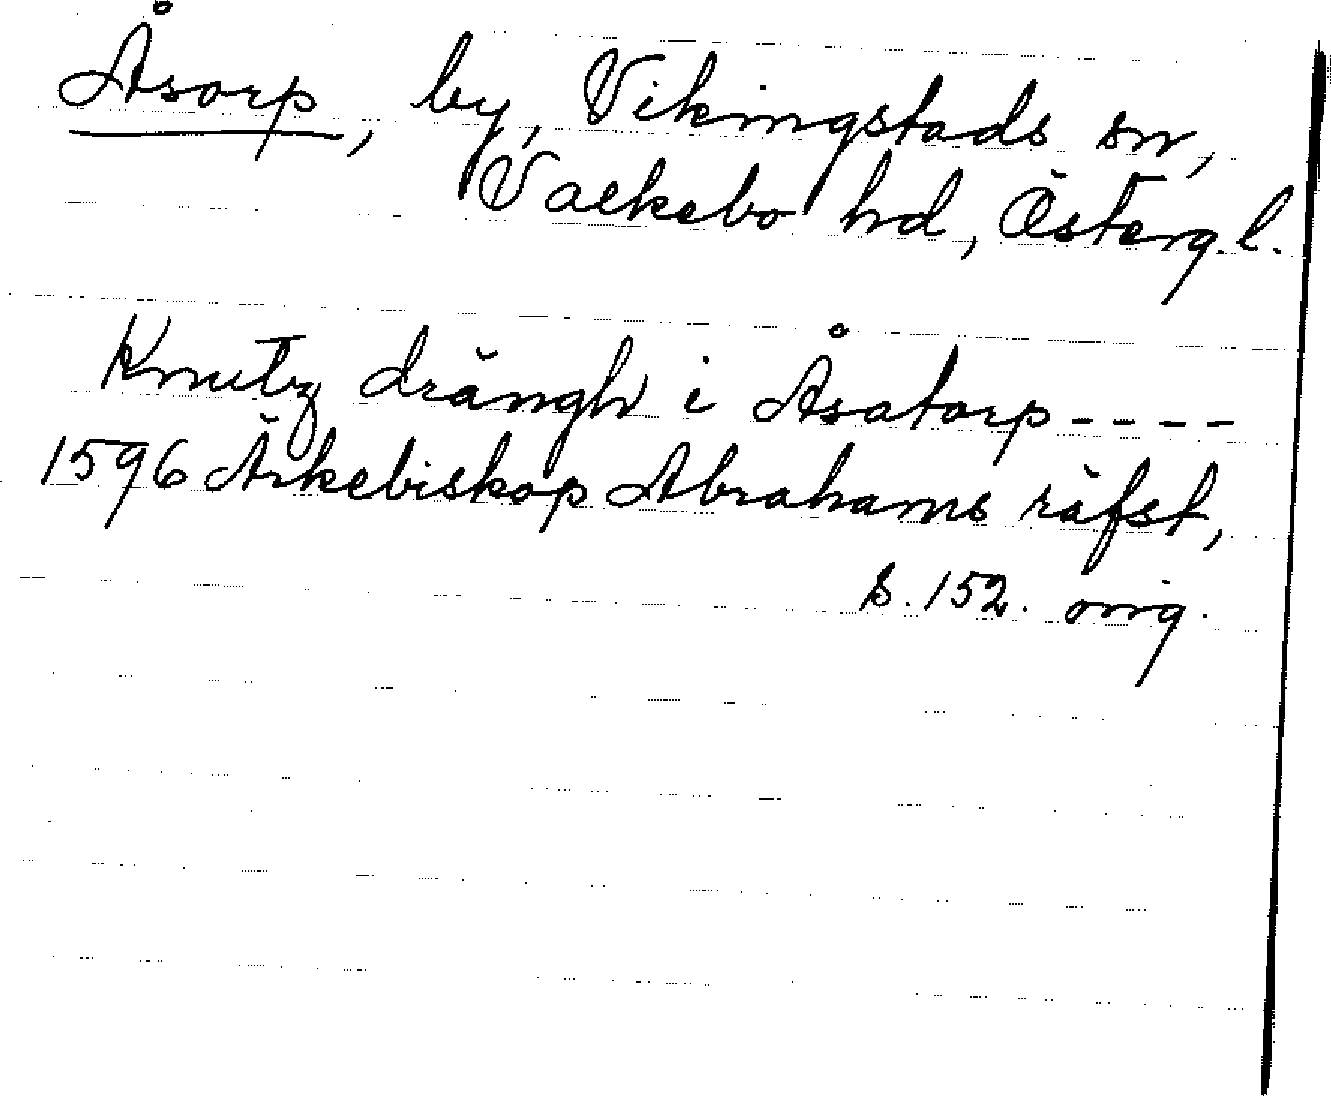 Åsorp, by, Vikingstads sn,
Valkebo hd, Österg.l.
Knutz drängh i Åsatorp ----
1596 Ärkebiskop Abrahams räfst,
s. 152. orig.